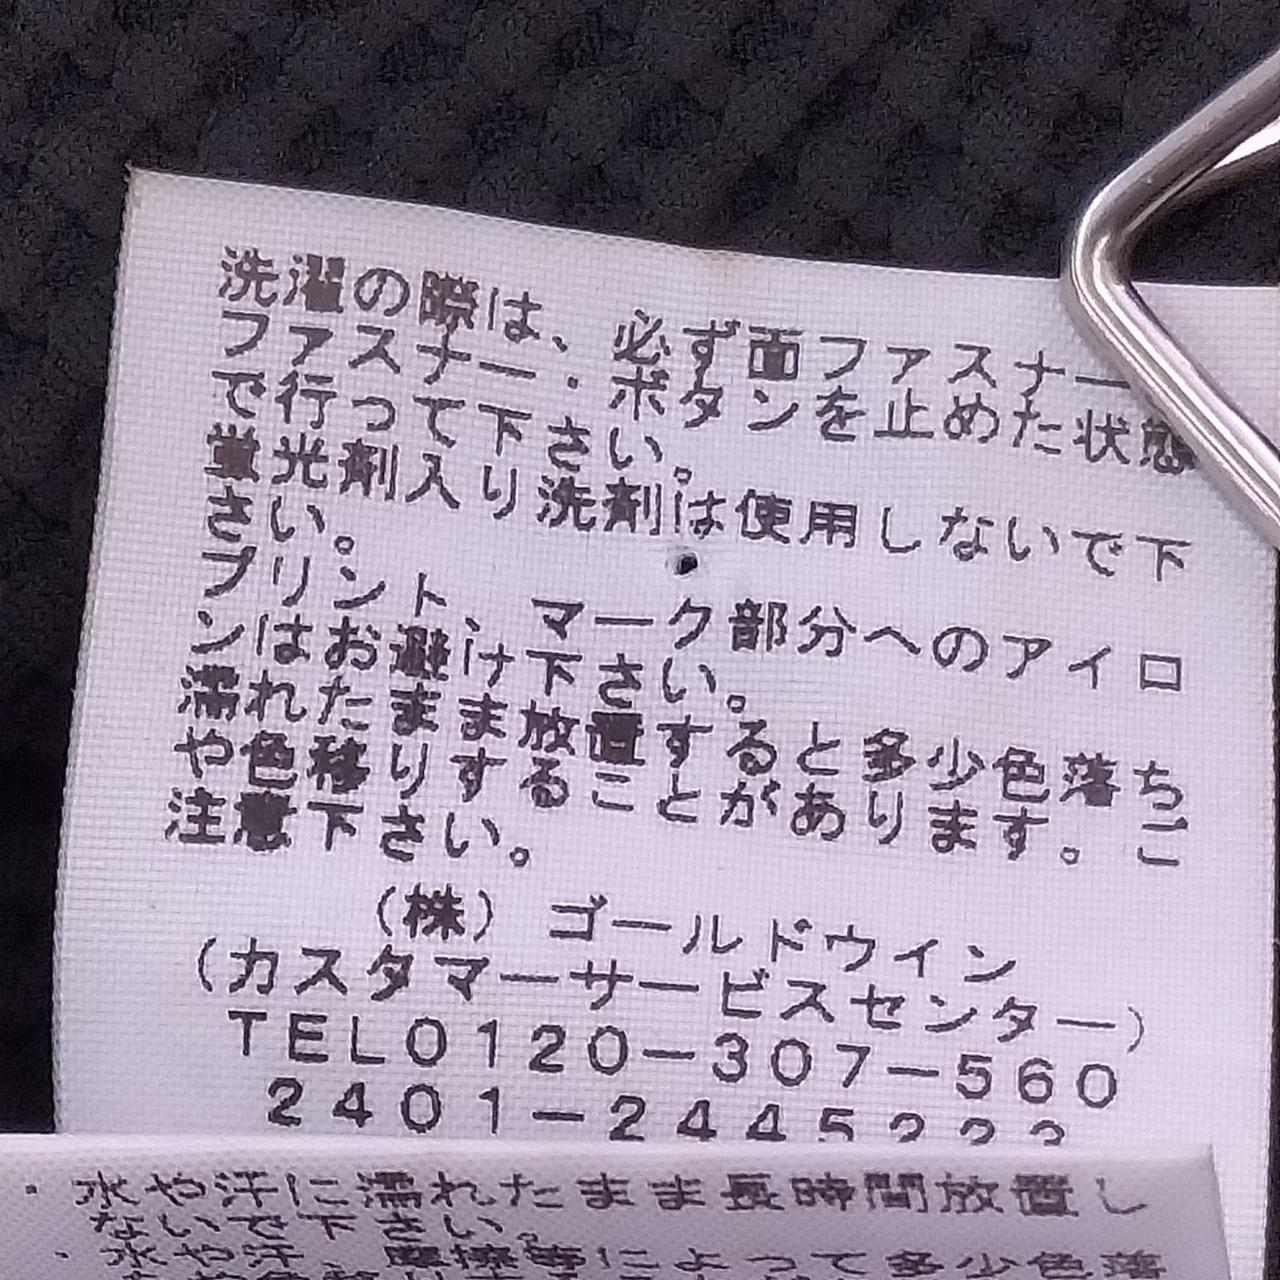 洗濯の際は、必ず面ファスナー
ファスナー・ボタンを止めた状態
で行って下さい。
蛍光剤入り洗剤は使用しないで下
さい。
プリント、マーク部分へのアイロ
ンはお避け下さい。
濡れたまま放置すると多少色落ち
や色移りすることがあります。ご
注意下さい。
(株) ゴールドウイン
(カスタマーサービスセンター)
TEL0120-307-560
2401-2445
・水や汗に濡れたまま長時間放置し
ないで下さい。
・水や汗、摩擦等によって多少色落